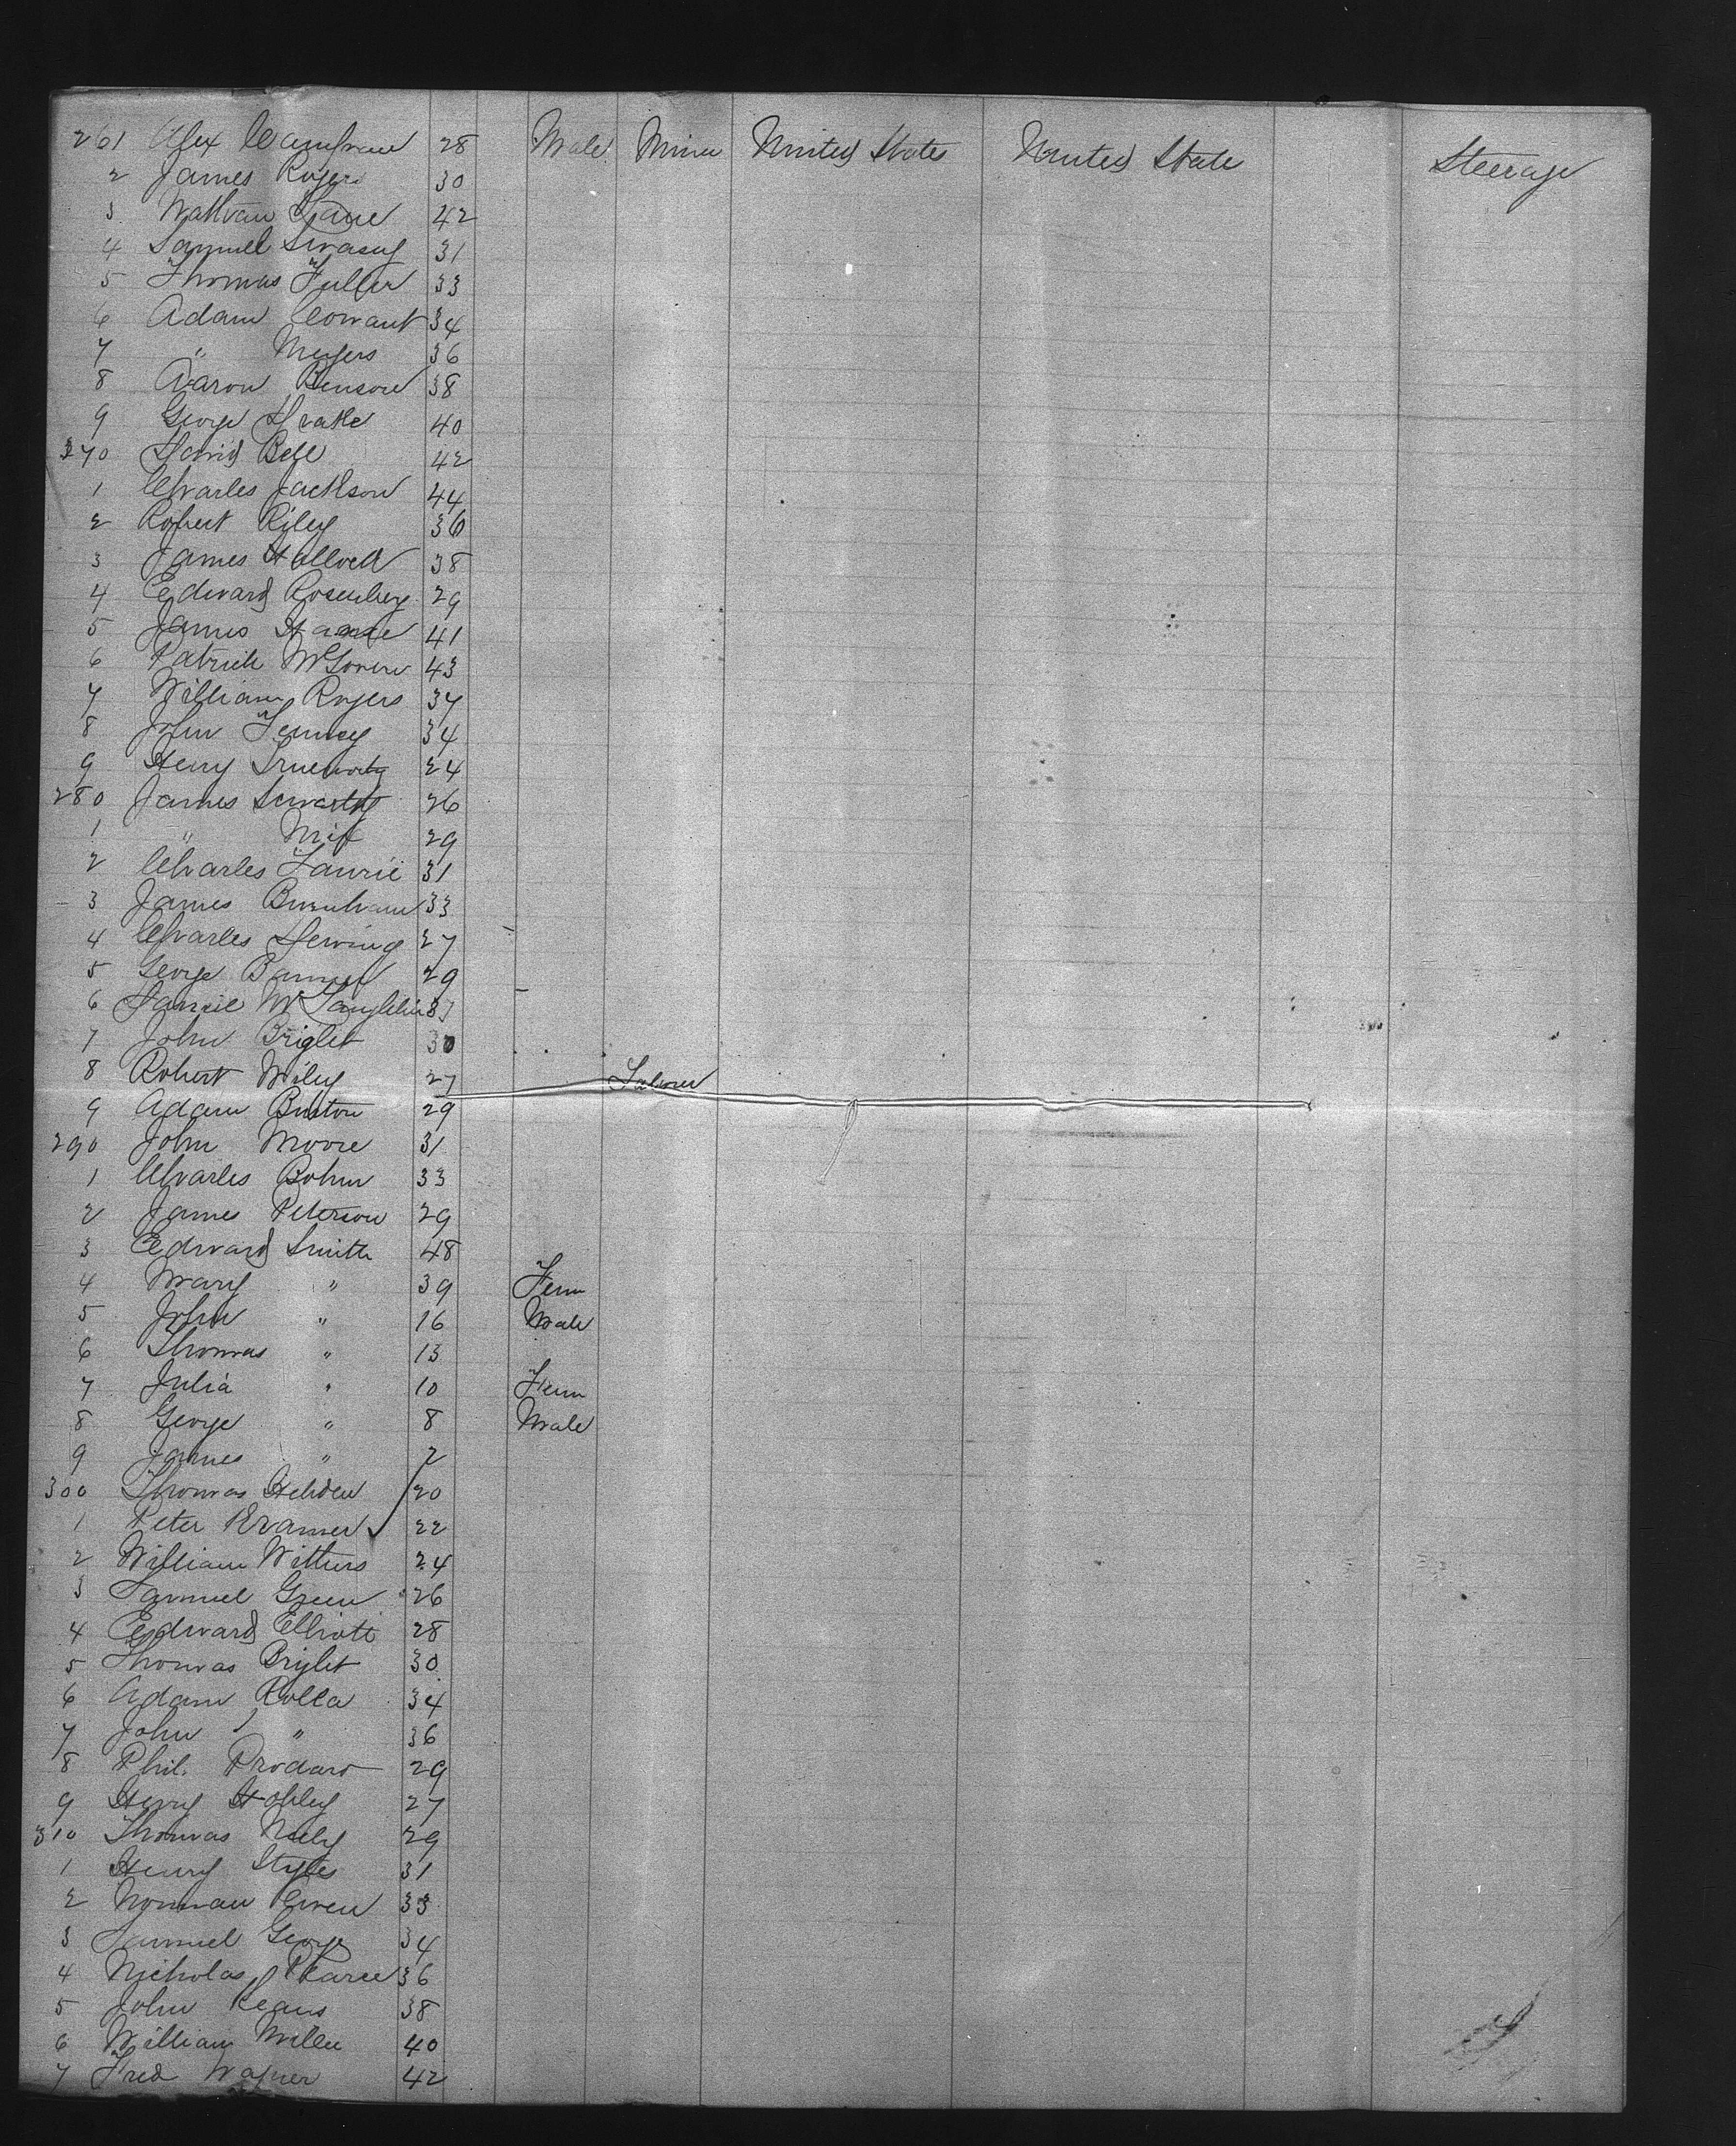 261 Alex Cameron 28 Male Miner United States United State Steerage
2 James Rogers 30
3 Nathan Lane 42
4 Samuel Swasey 31
5 Thomas Fuller 33
6 Adam Conant 34
7 " Meyers 36
8 Aaron Benson 38
9 George Drake 40
270 David Bell 42
1 Charles Jackson 44
2 Robert Riley 36
3 James Hallock 38
4 Edward Rosenberg 29
5 James 41
6 Patrick McGovern 43
7 William Rogers 37
8 John Fenney 34
9 Henry 24
280 James Swartz 26
1 " Mix 29
2 Charles Laurie 31
3 James Burnham 33
4 Charles Dewing 27
5 George 29
6 Daniel McLaughlin
7 John Bright 30
8 Robert Wiley 27 Labour
9 Adam Buxton 29
290 John Moore 31
1 Charles Bohm 33
2 James Peterson 29
3 Edward Smith 48
4 Mary " 39 Fem
5 John " 16 Male
6 Thomas " 13
7 Julia " 10 Fem
8 George " 8 Male
9 James " 2
300 Thomas 20
1 Peter Kramer 22
2 William Withers 24
3 Samuel Green 26
4 Edward Elliott 28
5 Thomas Bright 30
6 Adam Rolla 34
7 John " 36
8 Phil. 29
9 Henry Hobley 27
310 Thomas Neely 29
1 Henry Styles 31
2 Norman 33
3 Samuel George 34
4 Nicholas Pearce 36
5 John Keans 38
6 William Miller 40
7 Fred Wagner 42